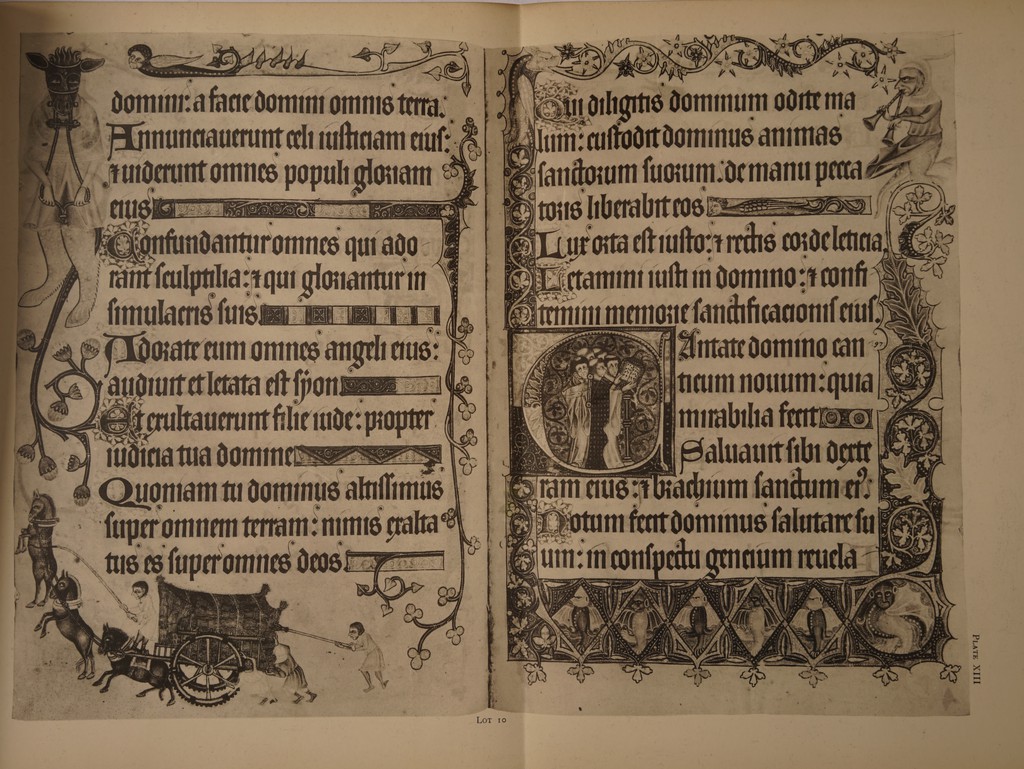 domini: a facie domini omnis terra.
Annunciauerunt celi iusticiam eius:
⁊ uiderunt omnes populi gloriam
eius
Confundantur omnes qui ado
rant sculptilia: ⁊ qui gloriantur in
simulacris suis
Adorate eum omnes angeli eius:
audiuit et letata est syon
Et exultauerunt filie iude: propter
iudicia tua domine
Quoniam tu dominus altissimus
super omnem terram: nimis exalta
tus es super omnes deos
Qui diligitis dominum odite ma
lum: custodit dominus animas
sanctorum suorum: de manu pecca
toris liberabit eos
Lux orta est iusto: ⁊ rectis corde leticia.
Letamini iusti in domino: ⁊ confi
temini memorie sanctificacionis eius.
Cantate domino can
ticum nouum: quia
mirabilia fecit
Saluauit sibi dexte
ram eius: ⁊ brachium sanctum ei⁹.
Notum fecit dominus salutare su
um: in conspectu gencium reuela
PLATE XIII
LOT 10